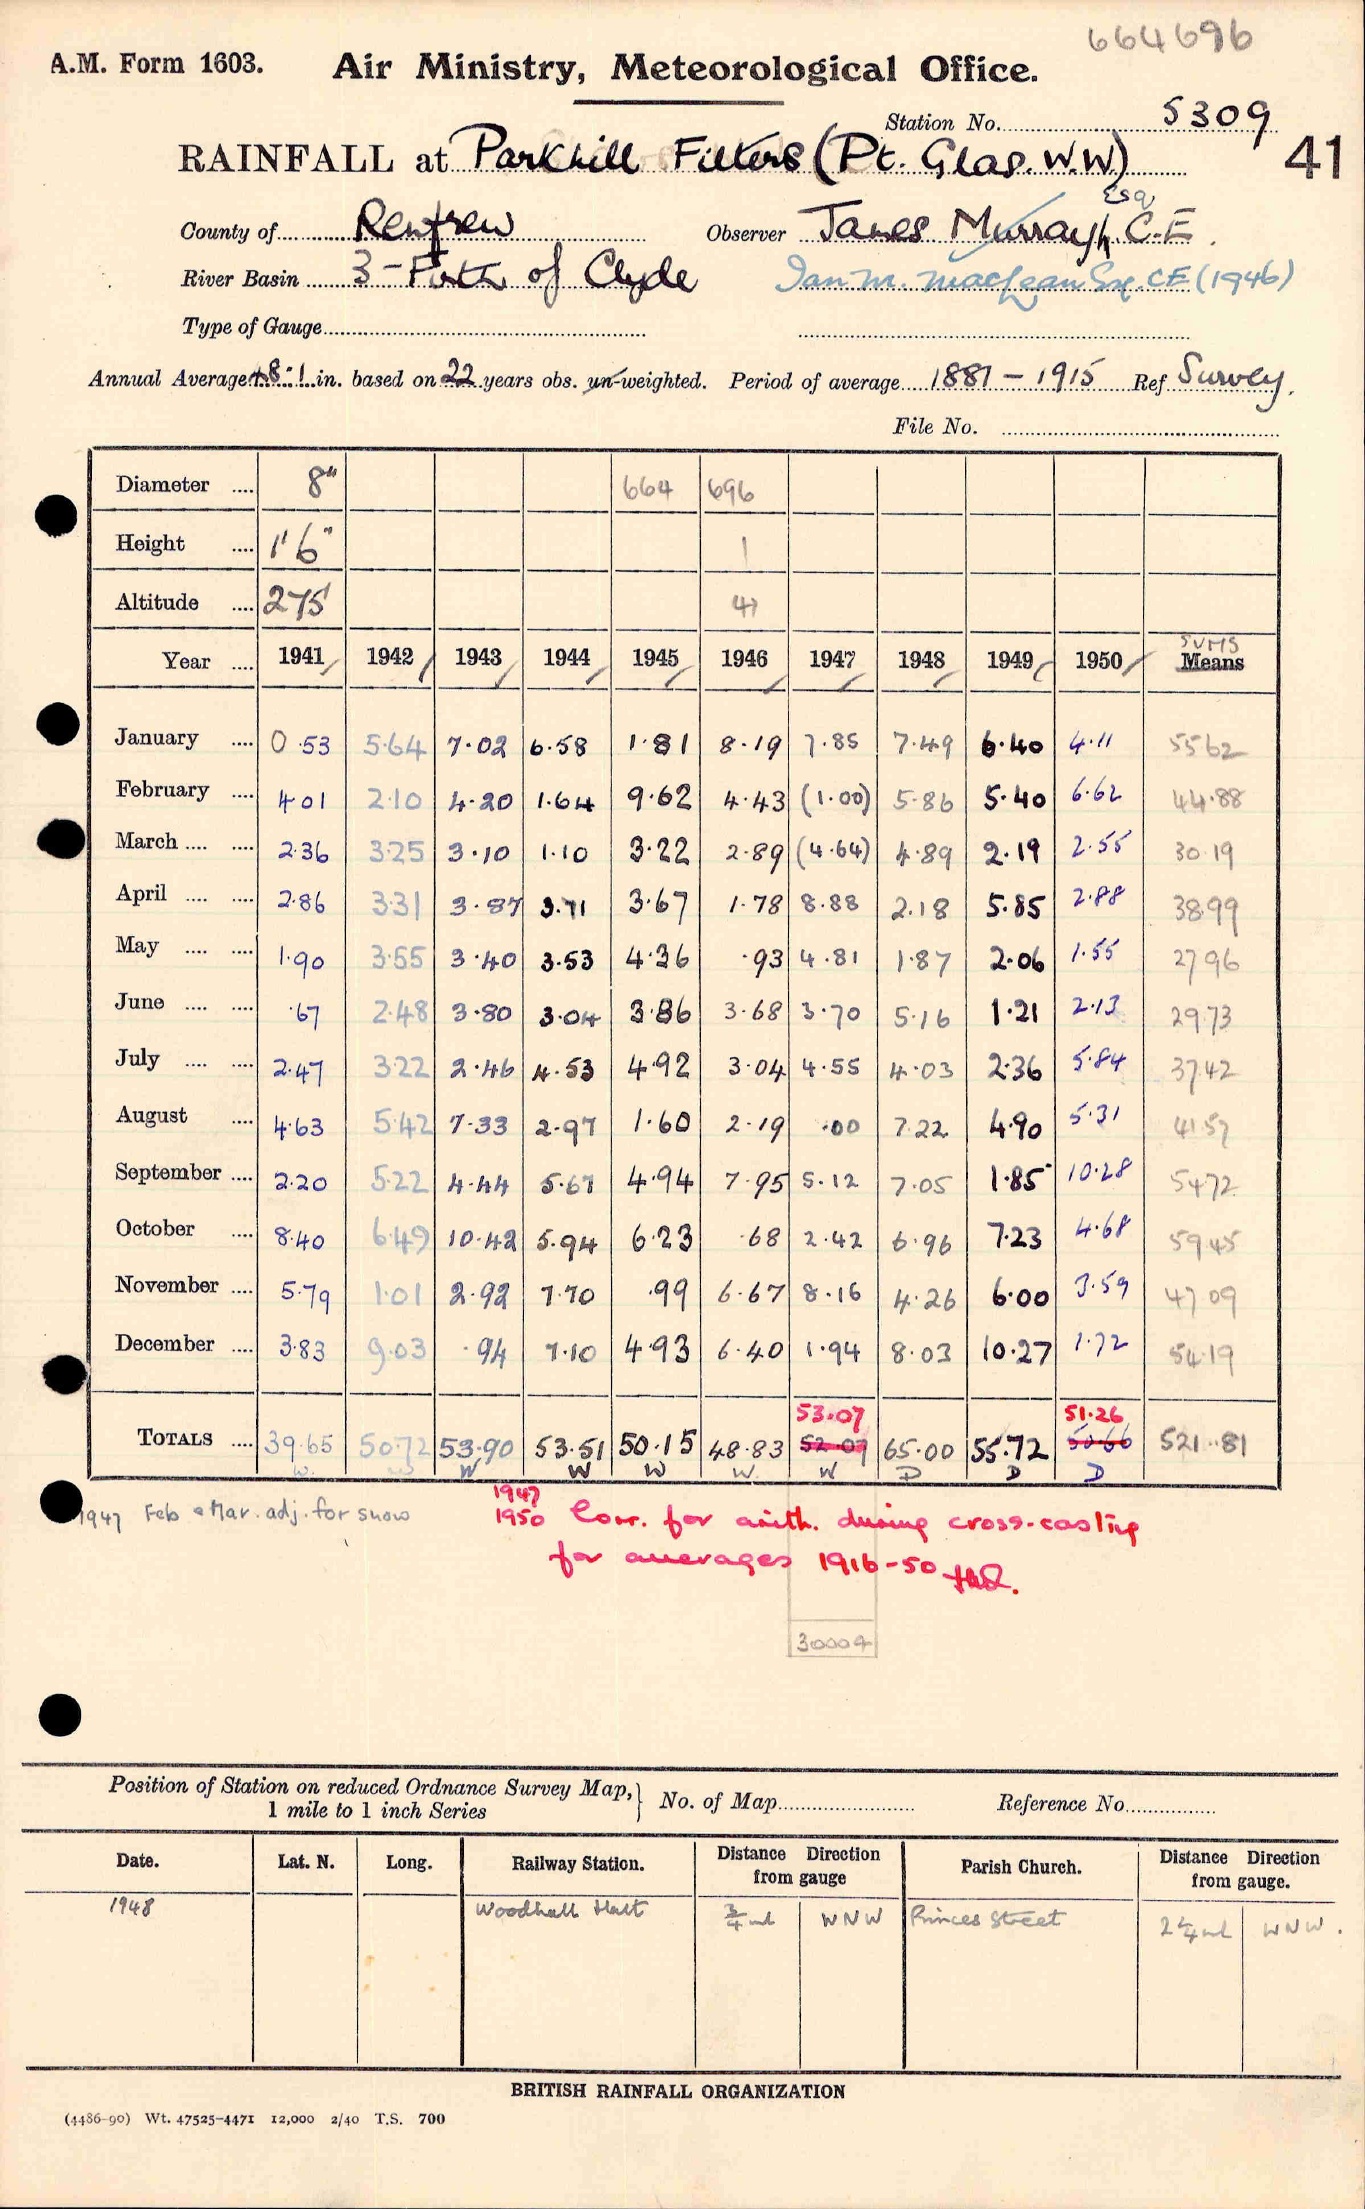 664696
A.M. Form 1603. Air Ministry, Meteorological Office.
Station No. 5309
RAINFALL at Parkhill Filters (Pt. Glas. W.W) 41
County of Renfrew Observer James Murray Esq C.E.
River Basin 3-Firth of Clyde Ian M. MacLean Esq. CE (1946)
Type of Gauge
Annual Average 48.1 in. based on 22 years obs. un-weighted. Period of average 1881-1915 Ref Survey.
File No.
Diameter .... 8" 664 696
Height .... 1'6" 1
Altitude .... 275 41
SUMS
Year .... 1941 1942 1943 1944 1945 1946 1947 1948 1949 1950 Means
January .... 0.53 5.64 7.02 6.58 1.81 8.19 7.85 7.49 6.40 4.11 5562
February .... 4.01 2.10 4.20 1.64 9.62 4.43 (1.00) 5.86 5.40 6.62 44.88
March .... .... 2.36 3.25 3.10 1.10 3.22 2.89 (4.64) 4.89 2.19 2.55 30.19
April .... .... 2.86 3.31 3.87 3.71 3.67 1.78 8.88 2.18 5.85 2.88 38.99
May .... .... 1.90 3.55 3.40 3.53 4.36 .93 4.81 1.87 2.06 1.55 27.96
June .... .... .67 2.48 3.80 3.04 3.86 3.68 3.70 5.16 1.21 2.13 29.73
July .... .... 2.47 3.22 2.46 4.53 4.92 3.04 4.55 4.03 2.36 5.84 37.42
August .... 4.63 5.42 7.33 2.97 1.60 2.19 .00 7.22 4.90 5.31 41.57
September .... 2.20 5.22 4.44 5.67 4.94 7.95 5.12 7.05 1.85 10.28 54.72
October .... 8.40 6.49 10.42 5.94 6.23 .68 2.42 6.96 7.23 4.68 59.45
November .... 5.79 1.01 2.92 7.70 .99 6.67 8.16 4.26 6.00 3.59 47.09
December .... 3.83 9.03 .94 7.10 4.93 6.40 1.94 8.03 10.27 1.72 54.19
53.07 51.26
TOTALS .... 39.65 50.72 53.90 53.51 50.15 48.83 52.07 65.00 55.72 50.66 521.81
W W W W W W W D D D
1947 Feb & Mar. adj. for snow
1947
1950 Corr. for arith. during cross-casting
for averages 1916-50
30004
Position of Station on reduced Ordnance Survey Map, 1 mile to 1 inch Series } No. of Map Reference No.
Date. Lat. N. Long. Railway Station. Distance from gauge Direction Parish Church. Distance from gauge. Direction
1948 Woodhall Halt 3/4 ml WNW Princes Street 2 1/4 ml WNW.
BRITISH RAINFALL ORGANIZATION
(4486-90) Wt. 47525-4471 12,000 2/40 T.S. 700